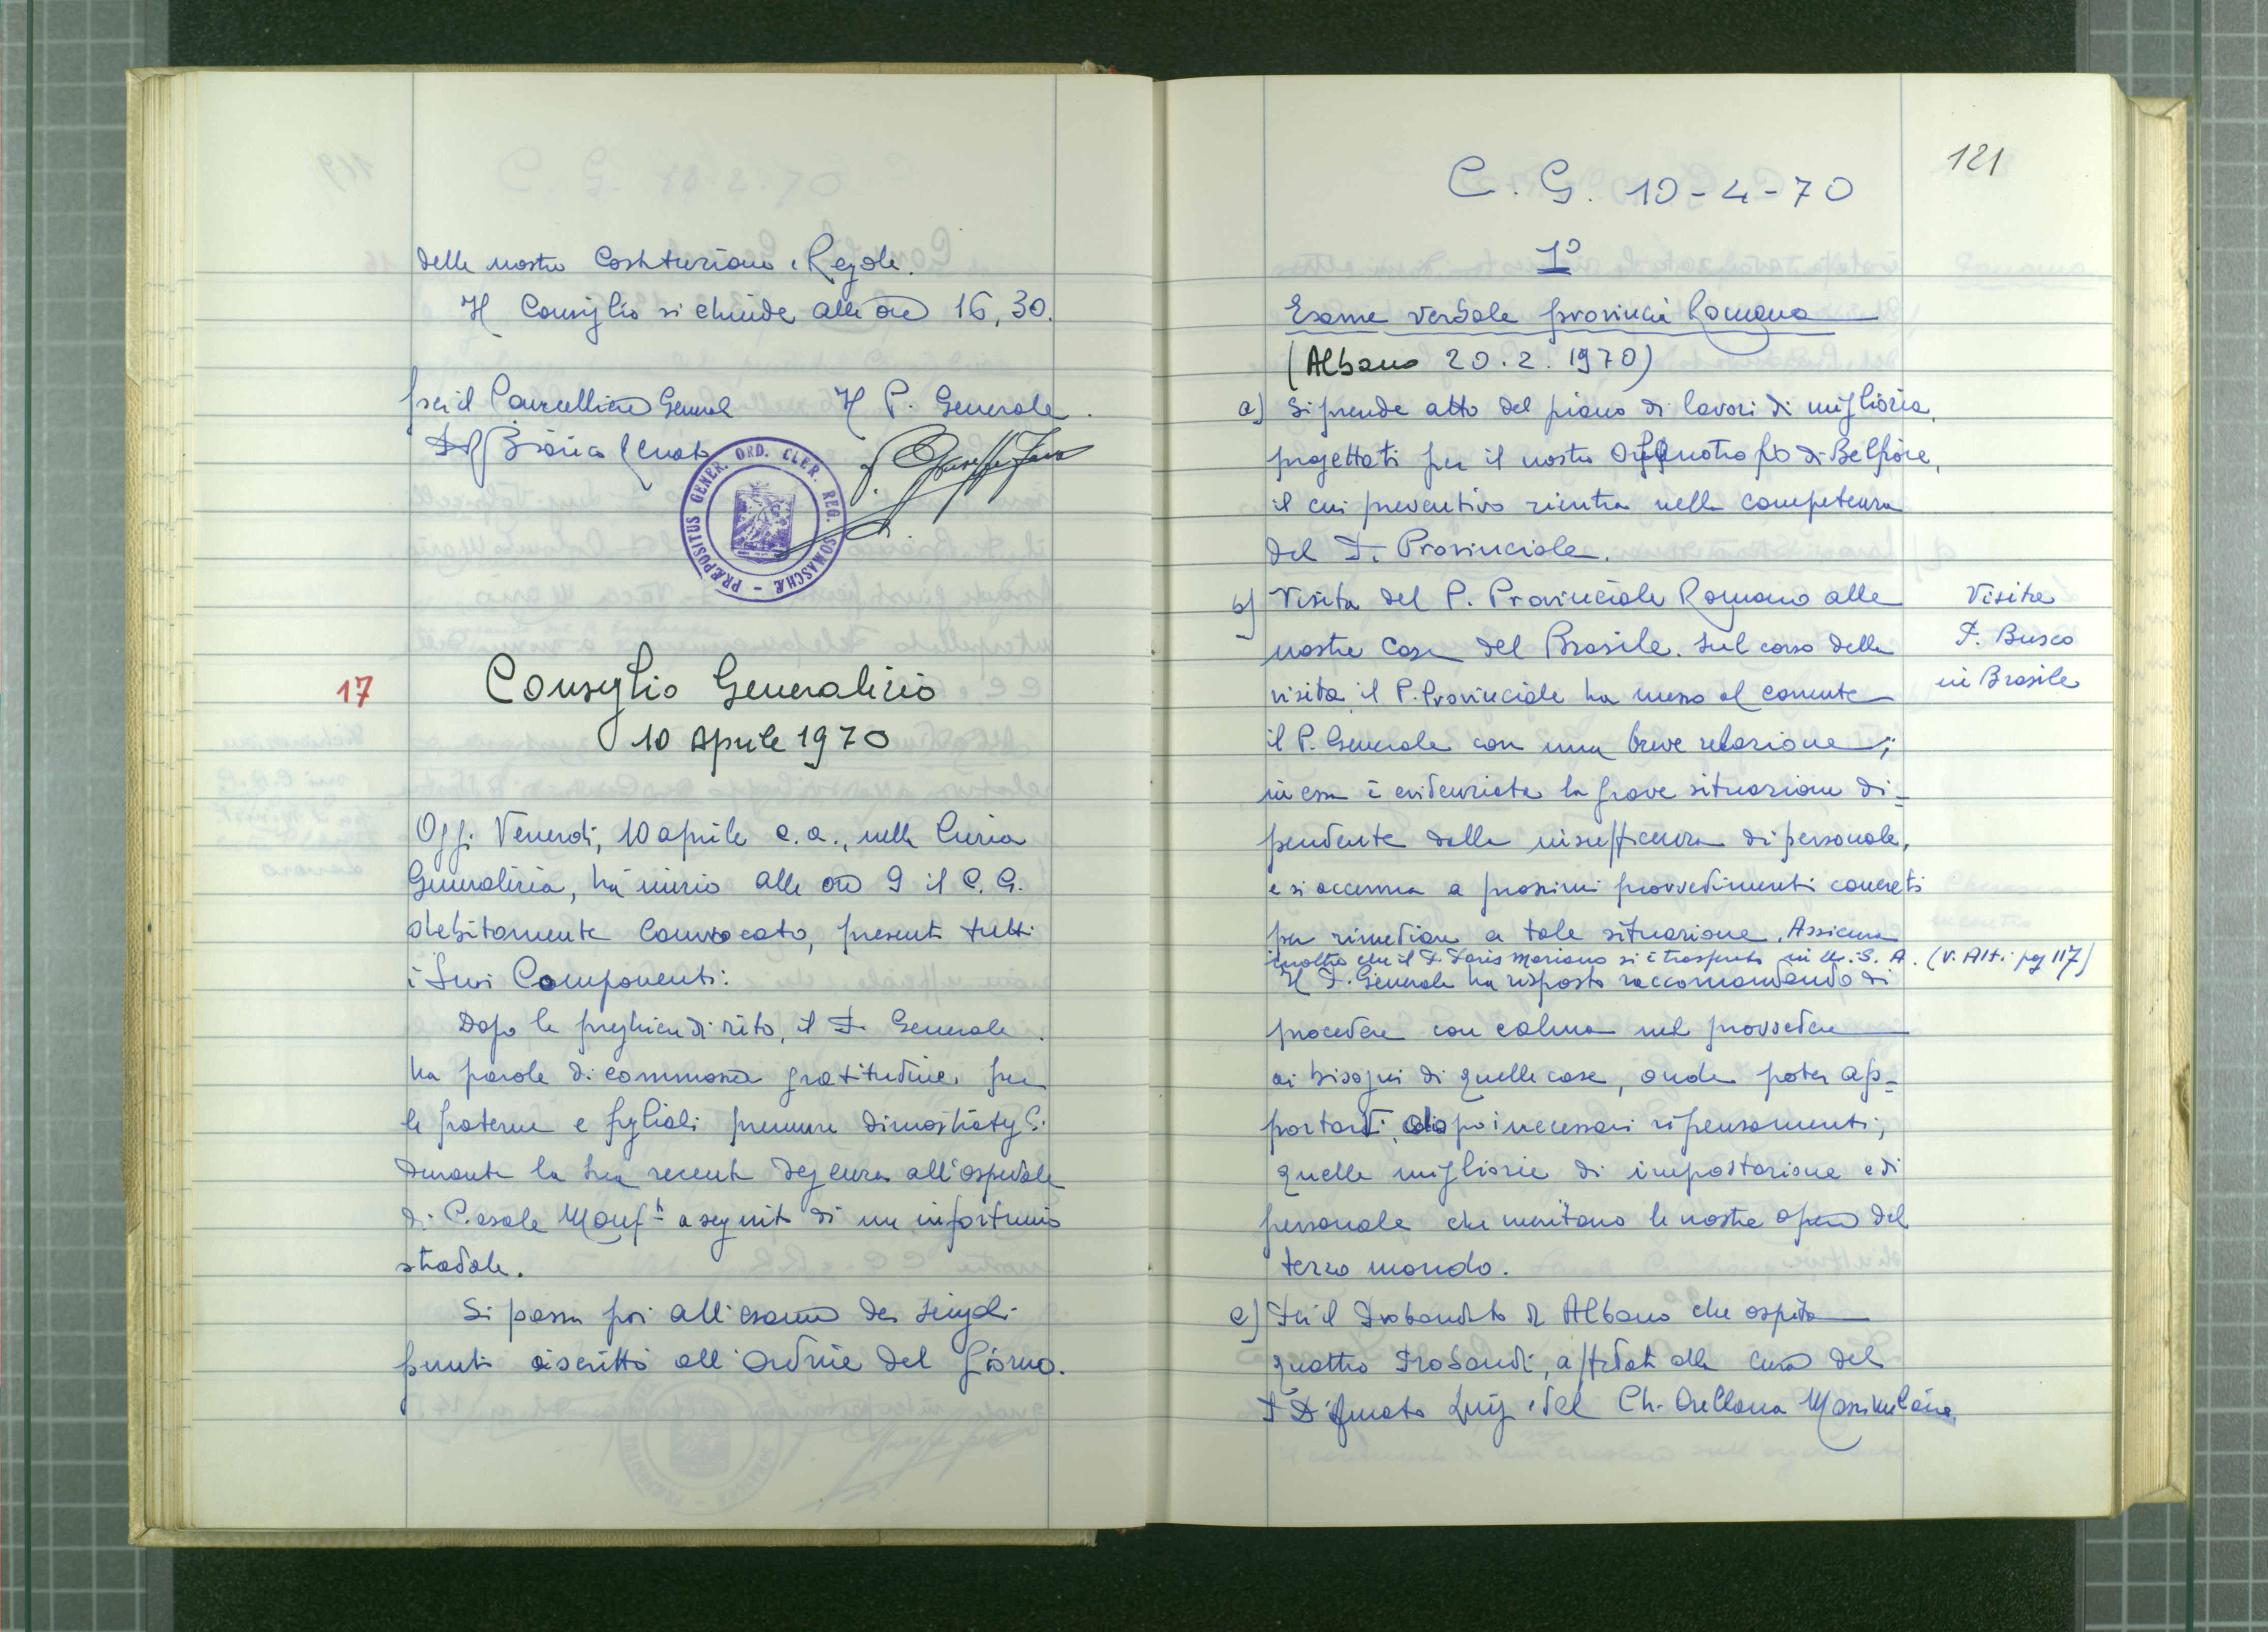 delle nostre Costituzioni e Regole.
Il Consiglio si chiude alle ore 16,30.
per il Cancelliere General
Il P. Generale
P. Bianco Renato
P. Giuseppe Fava
PRÆPOSITUS GENER. ORD. CLER. REG. SOMASCHÆ
17
Consiglio Generalizio
10 Aprile 1970
Oggi Venerdì, 10 aprile c.a., nella Curia
Generalizia, ha inizio alle ore 9 il C. G.
debitamente convocato, presenti tutti
i suoi Componenti:
Dopo le preghiere di rito, il P. Generale
ha parole di commossa gratitudine per
le fraterne e figliali premure dimostrategli
durante la sua recente degenza all'ospedale
di Casale Monf. a seguito di un infortunio
stradale.
Si passa poi all'esame dei singoli
punti iscritti all'Ordine del Giorno.
121
C. G. 10-4-70
1°
Esame verbale provincia Romana
(Albano 20.2.1970)
a) Si prende atto del piano di lavori di miglioria
progettati per il nostro Orfanotrofio di Belfiore,
il cui preventivo rientra nella competenza
del P. Provinciale.
b) Visita del P. Provinciale Romano alle
nostre Case del Brasile. Sul corso della
visita il P. Provinciale ha messo al corrente
il P. Generale con una breve relazione;
in essa è evidenziata la grave situazione di-
pendente dalla insufficenza di personale,
e si accenna a prossimi provvedimenti concreti
per rimediare a tale situazione. Assicura
inoltre che il P. Paris Mariano si è trasferito in U.S.A. (v. Atti pag 117)
Il P. Generale ha risposto raccomandando di
procedere con calma nel provvedere
ai bisogni di quelle case, onde poter ap-
portarvi, dopo i necessari ripensamenti,
quelle migliorie di impostazione e di
personale che meritano le nostre opere del
terzo mondo.
Visita
P. Busco
in Brasile
c) Per il Probandato di Albano che ospita
quattro Probandi, affidati alle cure del
P. D'Amato Luigi e del Ch. Orellana Massimiliano,